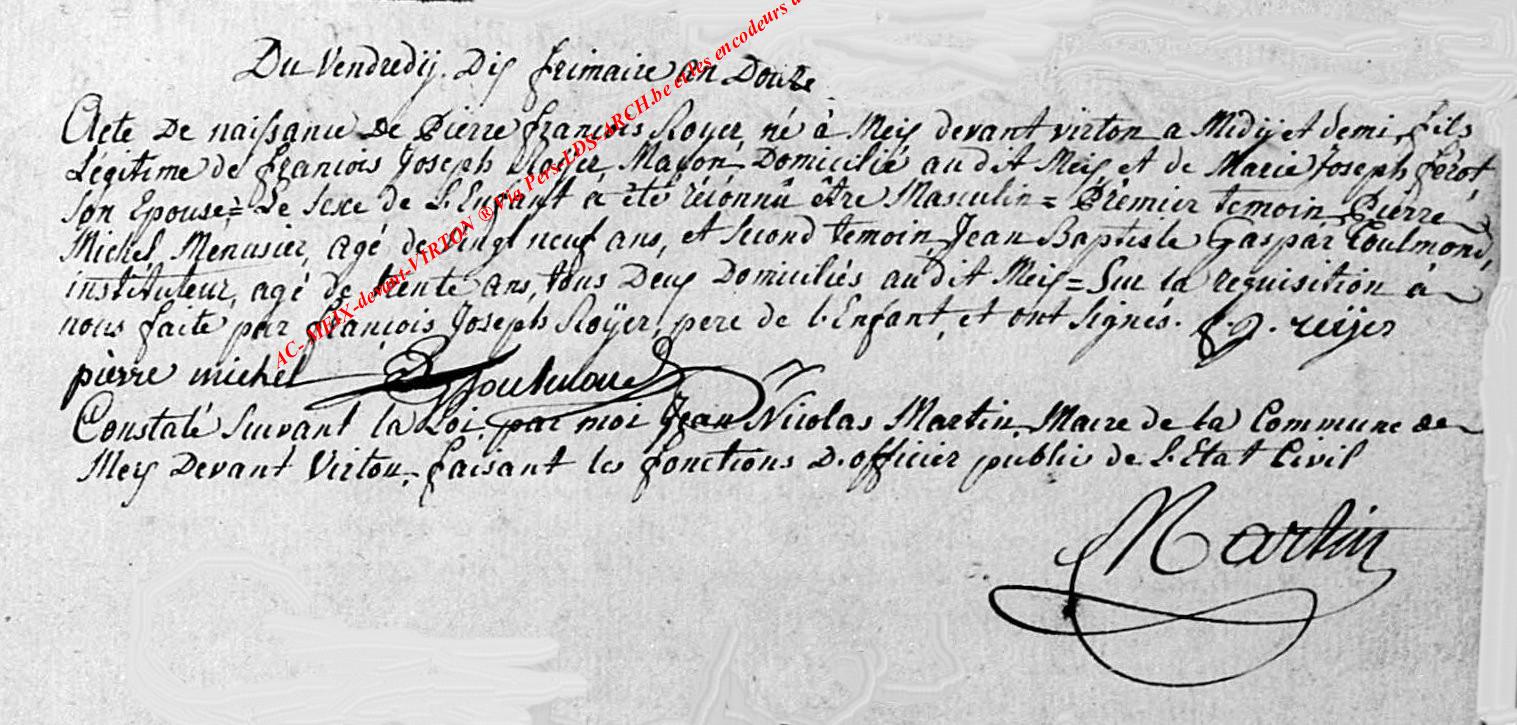 Du Vendredÿ. Dix frimaire an Douze.
Acte De naissance De Pierre françois Royer, né à Meix devant virton a Midÿ et demi, fils
Légitime de françois Joseph Royer, Maçon, Domicilié au dit Meix, et de Marie Joseph férot,
son Epouse = Le sexe de L'Enfant a été réconnû être Masculin = Prémier temoin Pierre
Michel, Ménusier, agé de vingt neuf ans, et second temoin Jean Baptiste Gaspár Toulmond,
instituteur, agé de trente ans, tous Deux Domiciliés au dit Meix = Sur la requisition à
nous faite par françois Joseph Roÿer, pere de l'Enfant, et ont signés. f. J. reijer
pièrre michel Toulmond
Constaté suivant la Loi, par moi Jean Nicolas Martin, Maire de la Commune de
Meix Devant Virton, faisant les fonctions D'officier public de L'Etat Civil
Martin
AC- MEIX-devant-VIRTON ® Via Pers-LDS-ARCH.be et les encodeurs